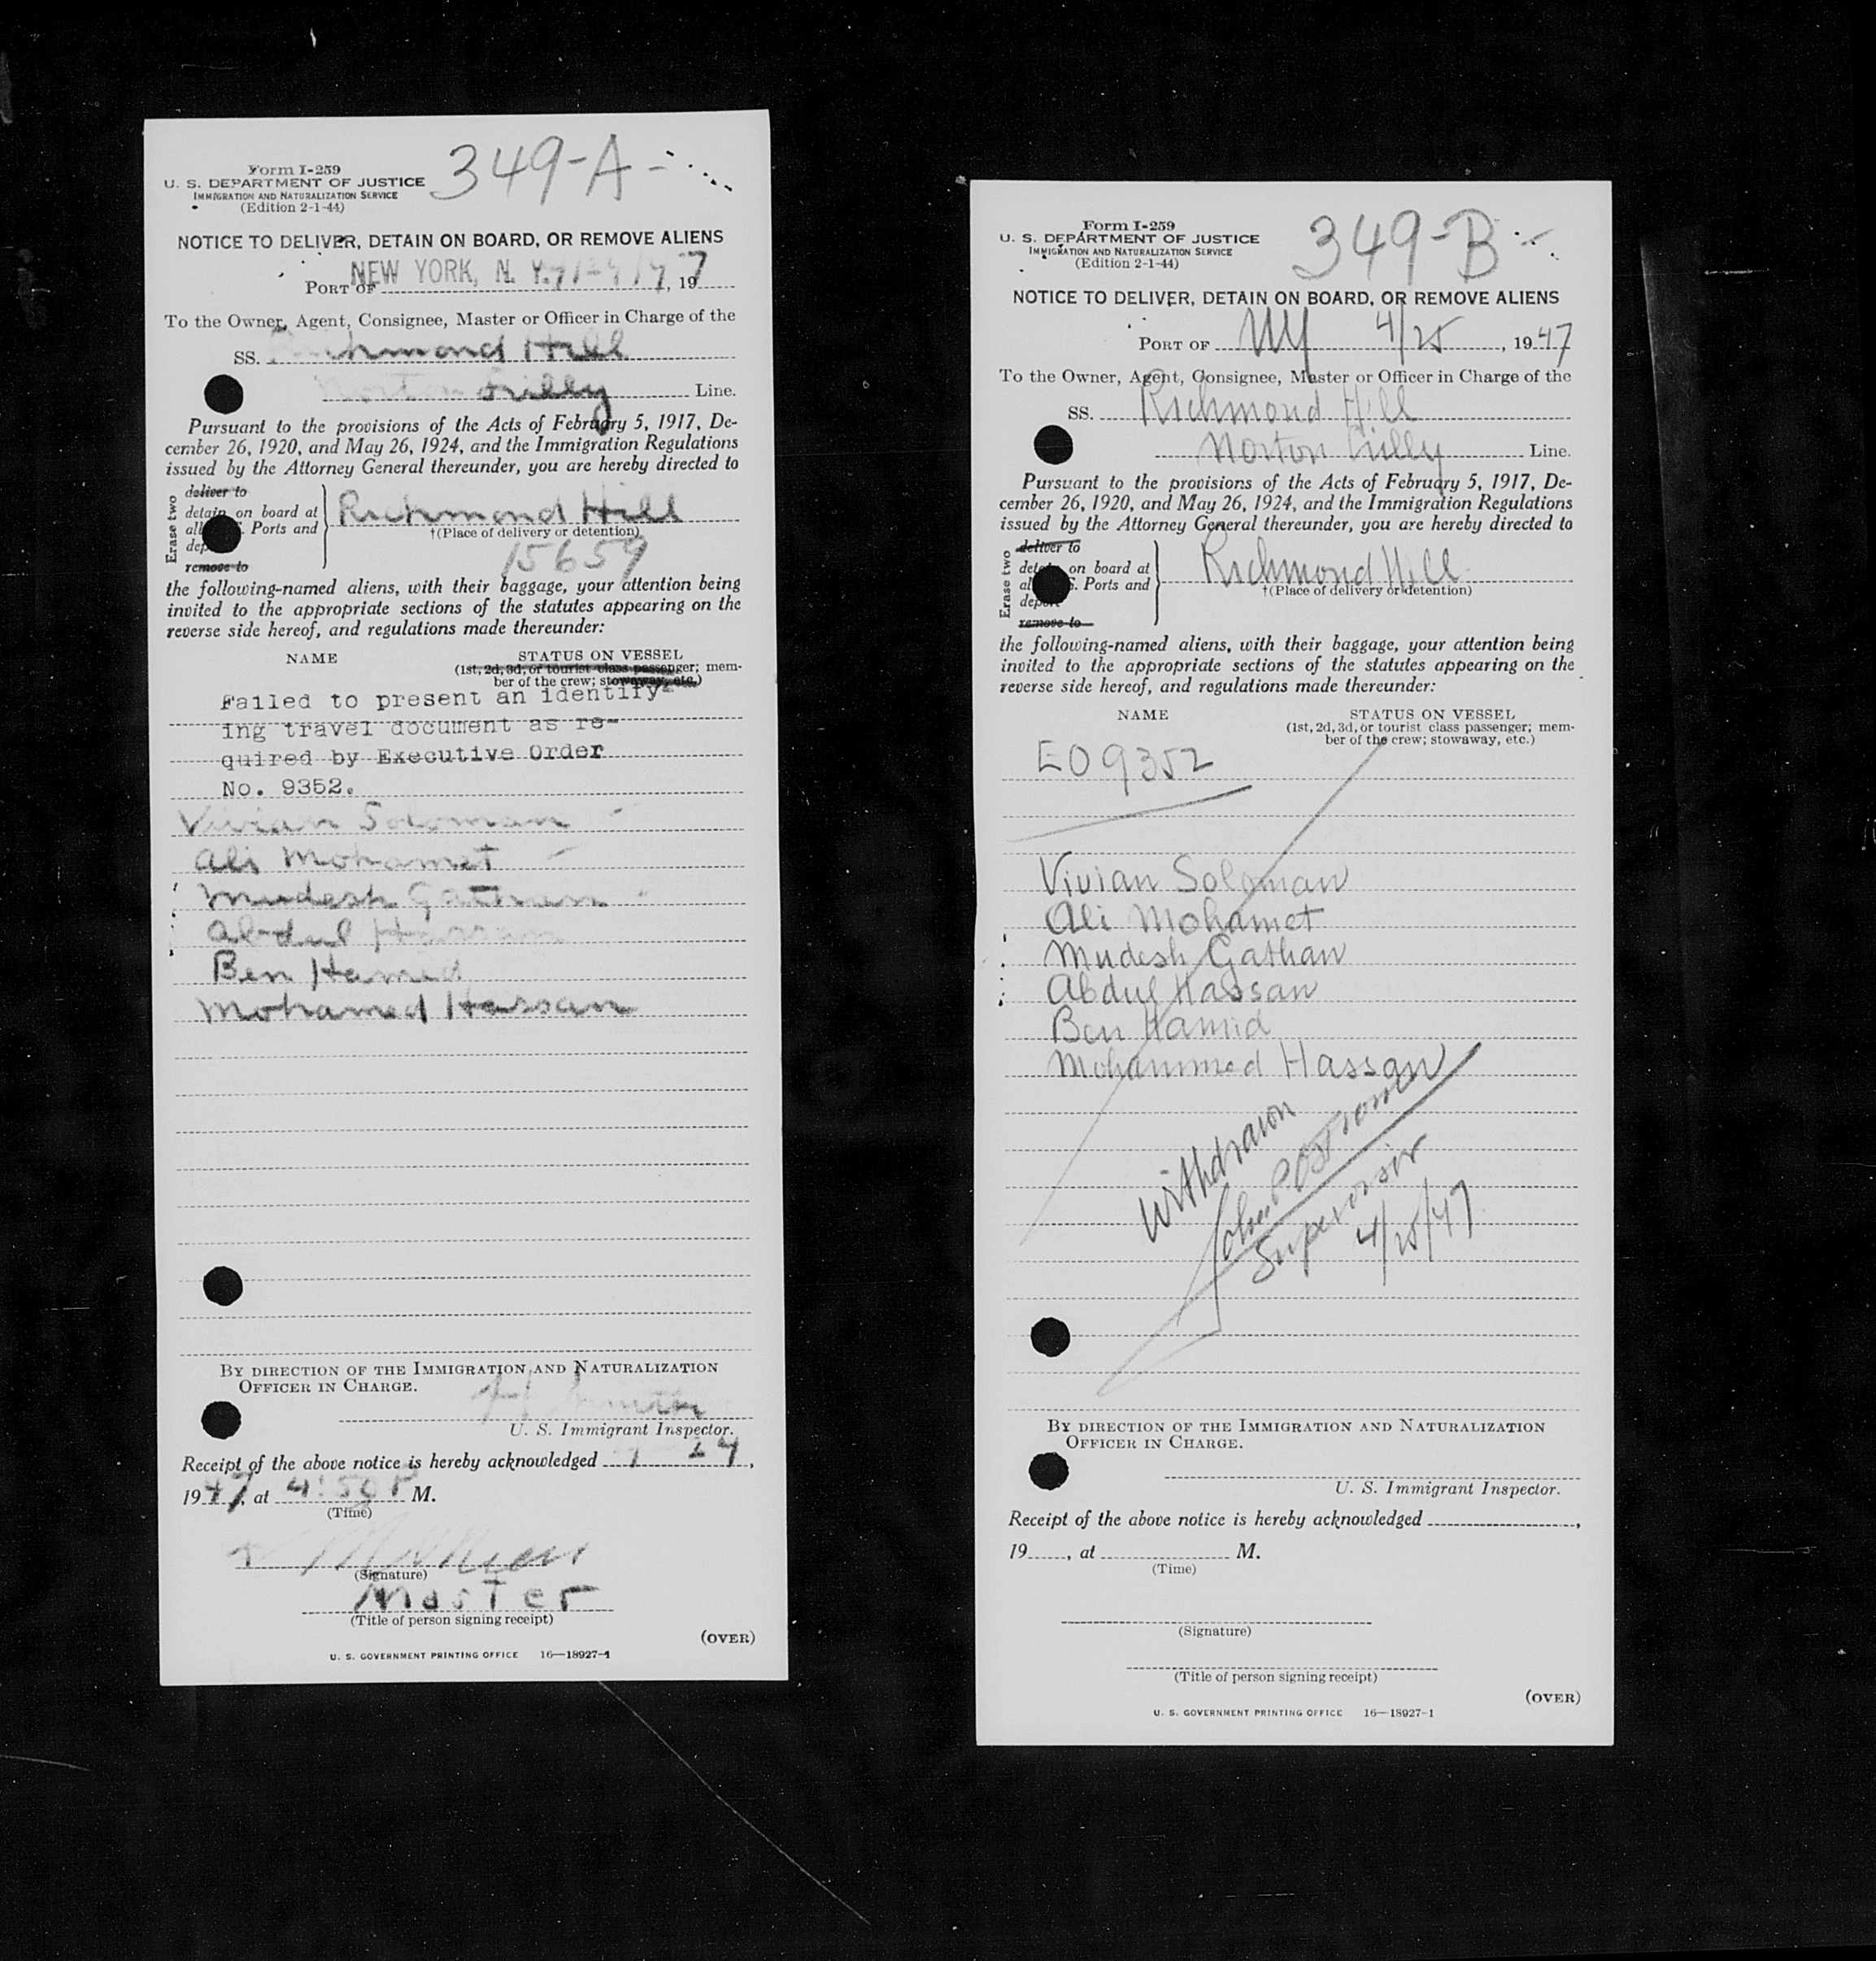 349-A
Form I-259
U. S. DEPARTMENT OF JUSTICE
IMMIGRATION AND NATURALIZATION SERVICE
(Edition 2-1-44)
NOTICE TO DELIVER, DETAIN ON BOARD, OR REMOVE ALIENS
PORT OF NEW YORK, N. Y. , 19 7
To the Owner, Agent, Consignee, Master or Officer in Charge of the
SS. Richmond Hill
Norton Lilly Line.
Pursuant to the provisions of the Acts of February 5, 1917, De-
cember 26, 1920, and May 26, 1924, and the Immigration Regulations
issued by the Attorney General thereunder, you are hereby directed to
Erase two
deliver to
detain on board at
all Ports and
dep
remove to
Richmond Hill
†(Place of delivery or detention)
15659
the following-named aliens, with their baggage, your attention being
invited to the appropriate sections of the statutes appearing on the
reverse side hereof, and regulations made thereunder:
NAME STATUS ON VESSEL
(1st, 2d, 3d, or tourist class passenger; mem-
ber of the crew; stowaway, etc.)
Failed to present an identify-
ing travel document as re-
quired by Executive Order
No. 9352.
Vivian Soloman
Ali Mohamet
Mudesh Gathan
Abdul Hassan
Ben Hamid
Mohamed Hassan
BY DIRECTION OF THE IMMIGRATION AND NATURALIZATION
OFFICER IN CHARGE.
U. S. Immigrant Inspector.
Receipt of the above notice is hereby acknowledged ,
1947, at 4:50 P M.
(Time)
(Signature)
Master
(Title of person signing receipt)
(OVER)
U. S. GOVERNMENT PRINTING OFFICE 16—18927-1
349-B
Form I-259
U. S. DEPARTMENT OF JUSTICE
IMMIGRATION AND NATURALIZATION SERVICE
(Edition 2-1-44)
NOTICE TO DELIVER, DETAIN ON BOARD, OR REMOVE ALIENS
PORT OF NY 4/25, 1947
To the Owner, Agent, Consignee, Master or Officer in Charge of the
SS. Richmond Hill
Norton Lilly Line.
Pursuant to the provisions of the Acts of February 5, 1917, De-
cember 26, 1920, and May 26, 1924, and the Immigration Regulations
issued by the Attorney General thereunder, you are hereby directed to
Erase two
deliver to
detain on board at
al S. Ports and
deport
remove to
Richmond Hill
†(Place of delivery or detention)
the following-named aliens, with their baggage, your attention being
invited to the appropriate sections of the statutes appearing on the
reverse side hereof, and regulations made thereunder:
NAME STATUS ON VESSEL
(1st, 2d, 3d, or tourist class passenger; mem-
ber of the crew; stowaway, etc.)
EO 9352
Vivian Soloman
Ali Mohamet
Mudesh Gathan
Abdul Hassan
Ben Hamid
Mohammed Hassan
Withdrawn
John P
Supervisor
4/25/47
BY DIRECTION OF THE IMMIGRATION AND NATURALIZATION
OFFICER IN CHARGE.
U. S. Immigrant Inspector.
Receipt of the above notice is hereby acknowledged ,
19 , at M.
(Time)
(Signature)
(Title of person signing receipt)
(OVER)
U. S. GOVERNMENT PRINTING OFFICE 16—18927-1